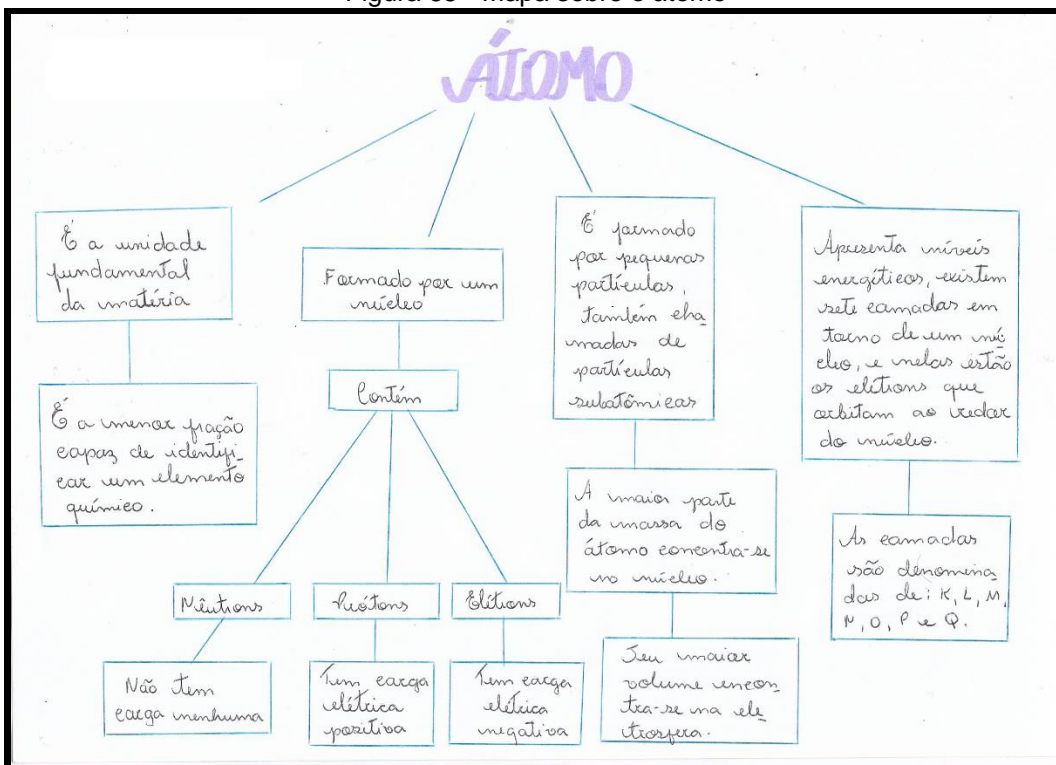 ÁTOMO
É a unidade
fundamental
da matéria
É a menor fração
capaz de identifi-
car um elemento
químico.
Formado por um
núcleo
Contém
Nêutrons
Prótons
Elétrons
Não tem
carga nenhuma
Tem carga
elétrica
positiva
Tem carga
elétrica
negativa
É formado
por pequenas
partículas,
também cha
madas de
partículas
subatômicas
A maior parte
da massa do
átomo concontra-se
no núcleo.
Seu maior
volume encon
tra-se na ele
trosfera.
Apresenta níveis
energéticos, existem
sete camadas em
torno de um nú
cleo, e nelas estão
os elétrons que
orbitam ao redor
do núcleo.
As camadas
são denomina
das de: K, L, M,
N, O, P e Q.